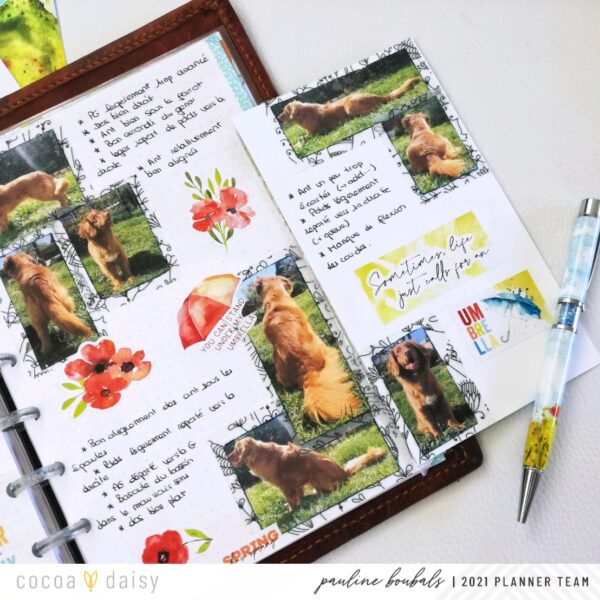 * PG légèrement trop avancé
* Dos bien droit
* Ant bien sous le garrot
* Bon arrondi du genou
* léger report de poids vers la
droite
* Ant relativement
bon aligné
YOU CAN STAND
UNDER MY
UMBRELLA
* Bon alignement des ant sous les
épaules
* Poids légèrement reporté vers la
droite
* AG déporté vers la G
* Bascule du bassin
dans le mauvais sens
* dos bien plat
SPRING
* Ant un peu trop
écartés
* Poids légèrement
reporté vers la droite
* Manque de flexion
des coudes
Sometimes, life
just calls for an
UM
BRE
LLA
cocoa daisy
pauline boubals | 2021 PLANNER TEAM